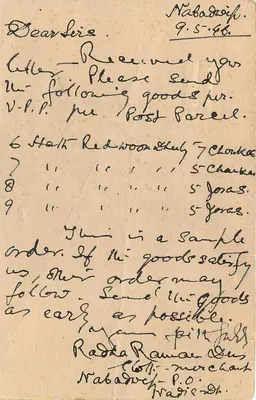 Nabadwip.
9.5.46.
Dear Sirs.
Received your
letter Please send
the following goods per
V.P.P. per Post Parcel.
6 Redwoon 7
7 " " " 5
8 " " " 5 Joras.
9 " " " 5 Joras.
This is a sample
order. If the goods satisfy
us, other order may
follow. Send the goods
as early as possible.
yours faithfully
Radha Raman Das
Cloth-merchant
Nabadwip P.O.
Nadia-Dt.